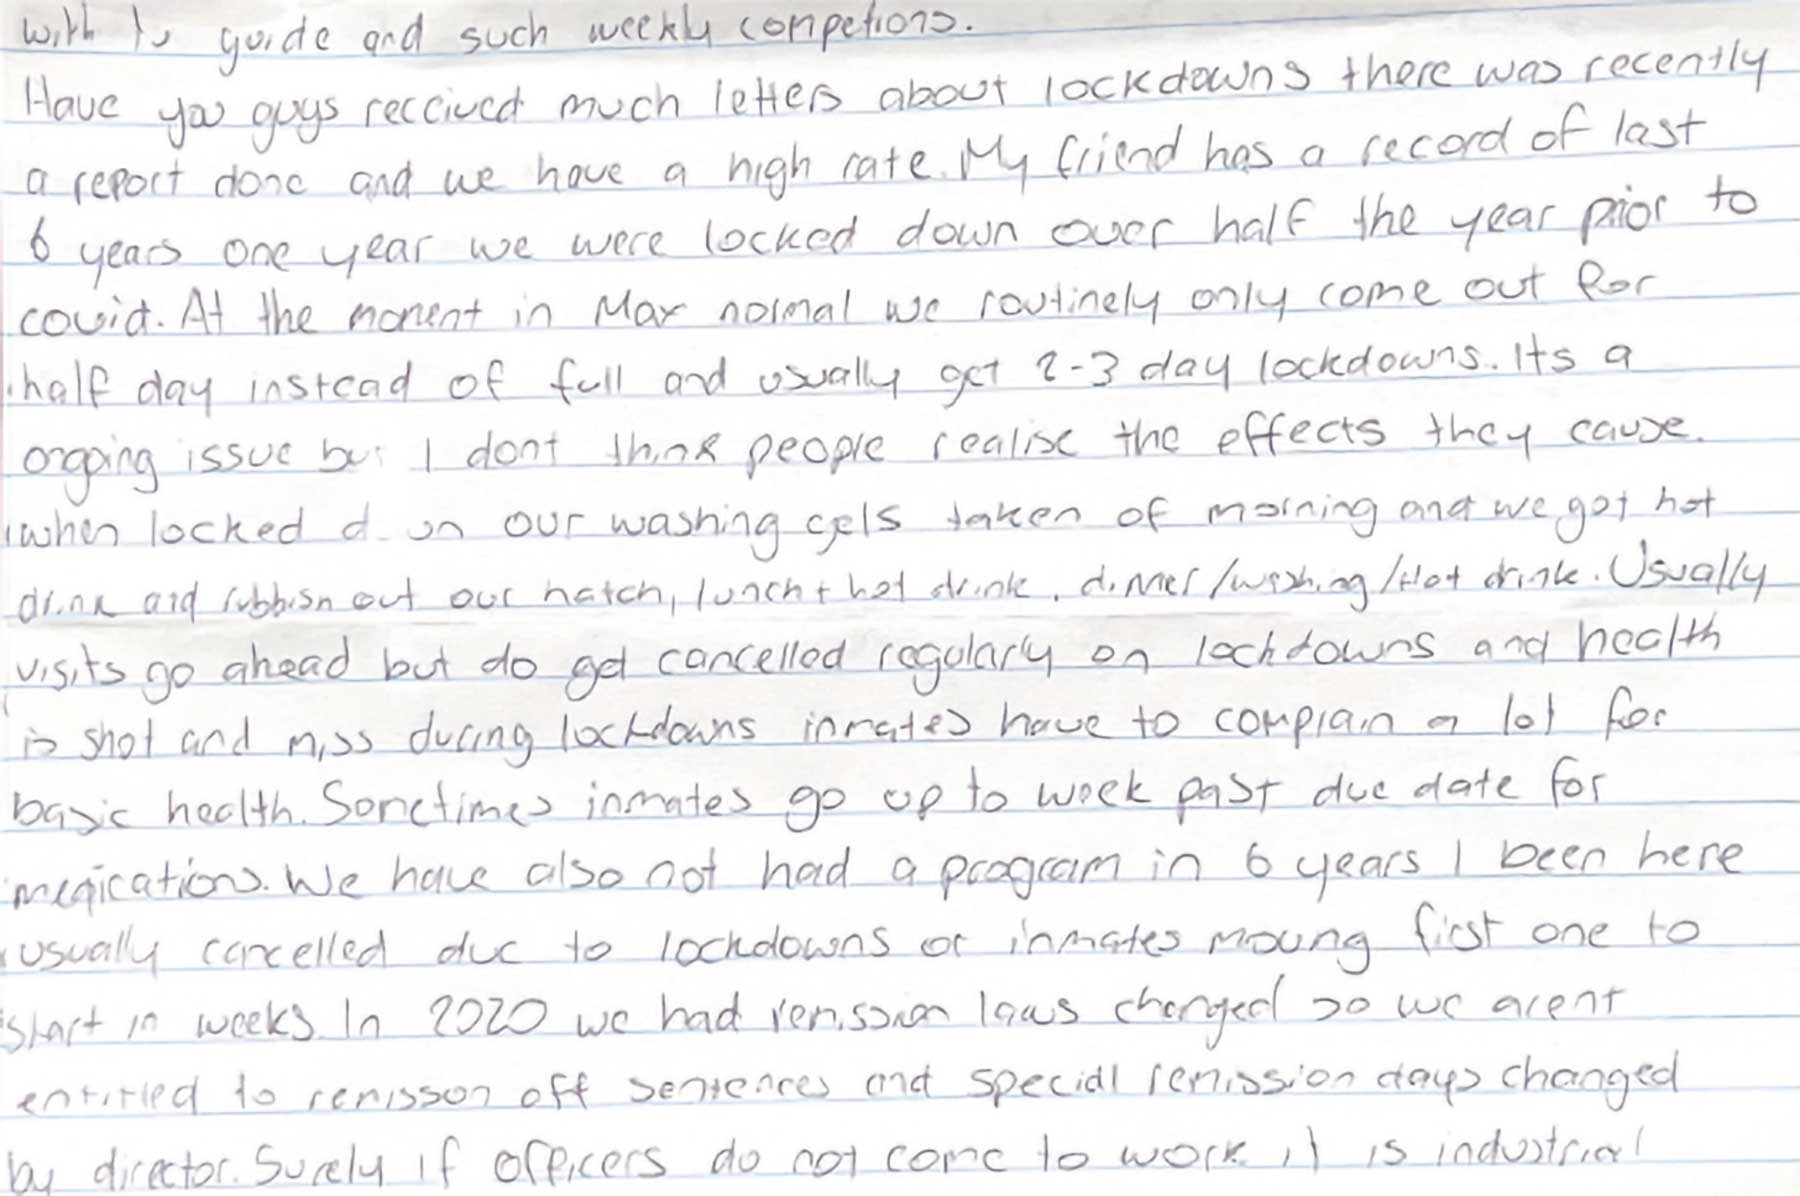 with tv guide and such weekly competions.
Have you guys received much letters about lockdowns there was recently
a report done and we have a high rate. My friend has a record of last
6 years one year we were locked down over half the year prior to
covid. At the moment in Max normal we routinely only come out for
half day instead of full and usually get 2-3 day lockdowns. Its a
ongoing issue but I dont think people realise the effects they cause.
when locked down our washing gets taken of morning and we got hot
drink and rubbish out our hatch, lunch + hot drink, dinner/washing/Hot drink. Usually
visits go ahead but do get cancelled regularly on lockdowns and health
is shot and miss during lockdowns inmates have to complain a lot for
basic health. Sometimes inmates go up to week past due date for
medications. We have also not had a program in 6 years I been here
usually cancelled due to lockdowns or inmates moving first one to
start in weeks. In 2020 we had remission laws changed so we arent
entitled to remisson off sentences and special remission days changed
by director. Surely if officers do not come to work it is industrial